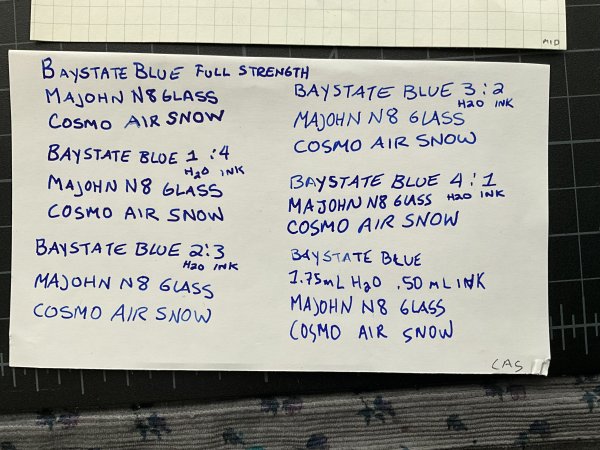 MID
BAYSTATE BLUE FULL STRENGTH
MAJOHN N8 GLASS
COSMO AIR SNOW
BAYSTATE BLUE 1:4
H2O INK
MAJOHN N8 GLASS
COSMO AIR SNOW
BAYSTATE BLUE 2:3
H2O INK
MAJOHN N8 GLASS
COSMO AIR SNOW
BAYSTATE BLUE 3:2
H2O INK
MAJOHN N8 GLASS
COSMO AIR SNOW
BAYSTATE BLUE 4:1
MAJOHN N8 GLASS H2O INK
COSMO AIR SNOW
BAYSTATE BLUE
1.75mL H2O .50 mL INK
MAJOHN N8 GLASS
COSMO AIR SNOW
CAS